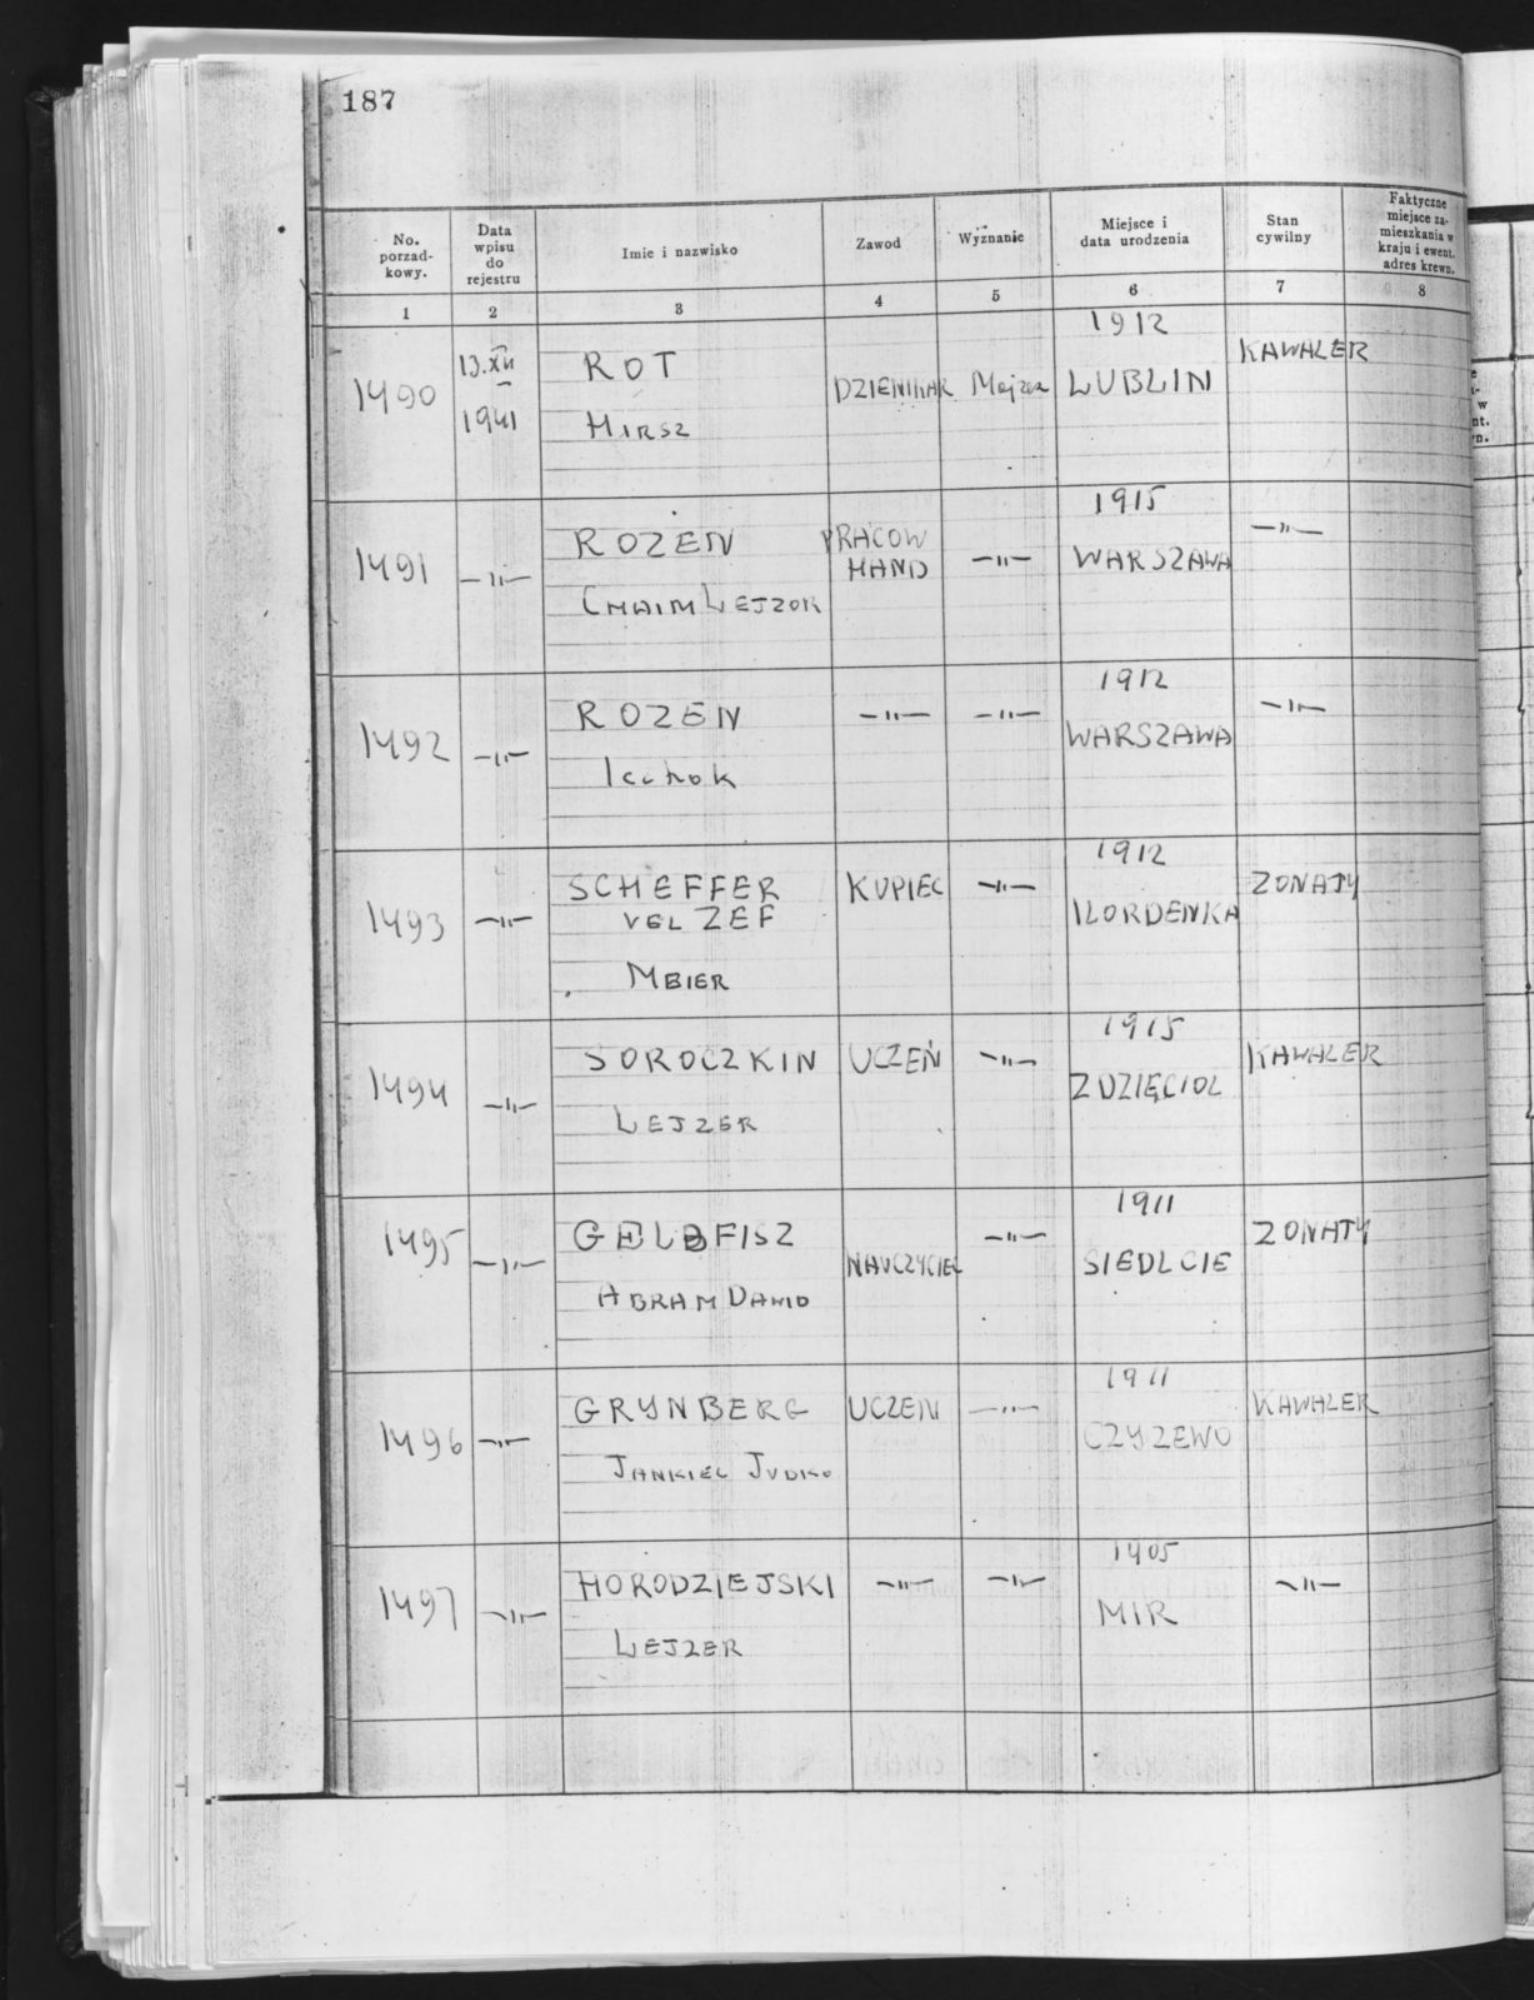 187
No. porzad- kowy.
Data wpisu do rejestru
Imie i nazwisko
Zawod
Wyznanie
Miejsce i data urodzenia
Stan cywilny
Faktyczne miejsce za- mieszkania w kraju i ewent. adres krewn.
1 2 3 4 5 6 7 8
1912
1490 13.XII ROT DZIENNIKAR Mojzesz LUBLIN KAWALER
1941 HIRSZ
1915
1491 —"— ROZEN PRACOW —"— WARSZAWA —"—
HAND
CHAIM LEJZOR
1912
1492 —"— ROZEN —"— —"— WARSZAWA —"—
Icchok
1912
1493 —"— SCHEFFER KUPIEC —"— ZONATY
VEL ZEF
MEIER
1915
1494 —"— SOROCZKIN UCZEŃ —"— ZDZIĘCIOL KAWALER
LEJZER
1911
1495 —"— GELBFISZ NAUCZYCIEL —"— SIEDLCIE ZONATY
ABRAM DAWID
1911
1496 —"— GRYNBERG UCZEN —"— CZYZEWO KAWALER
JANKIEL JUDKO
1905
1497 —"— HORODZIEJSKI —"— —"— MIR —"—
LEJZER